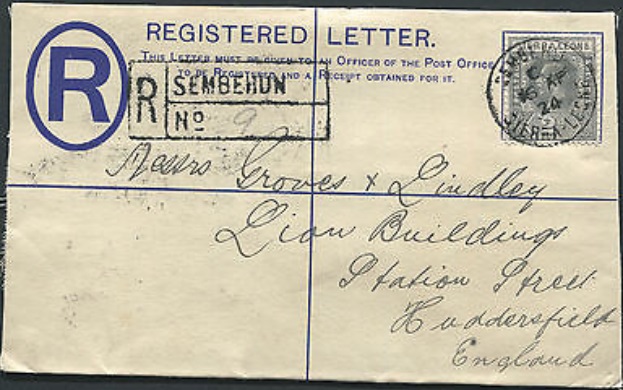 REGISTERED LETTER.
THIS LETTER MUST BE GIVEN TO AN OFFICER OF THE POST OFFICE
TO BE REGISTERED AND A RECEIPT OBTAINED FOR IT.
R
R
SEMBEHUN
No 9
SIERRA LEONE
SIERRA-LEONE
24
Messrs Groves & Lindley
Lion Buildings
Station Street
Huddersfield
England